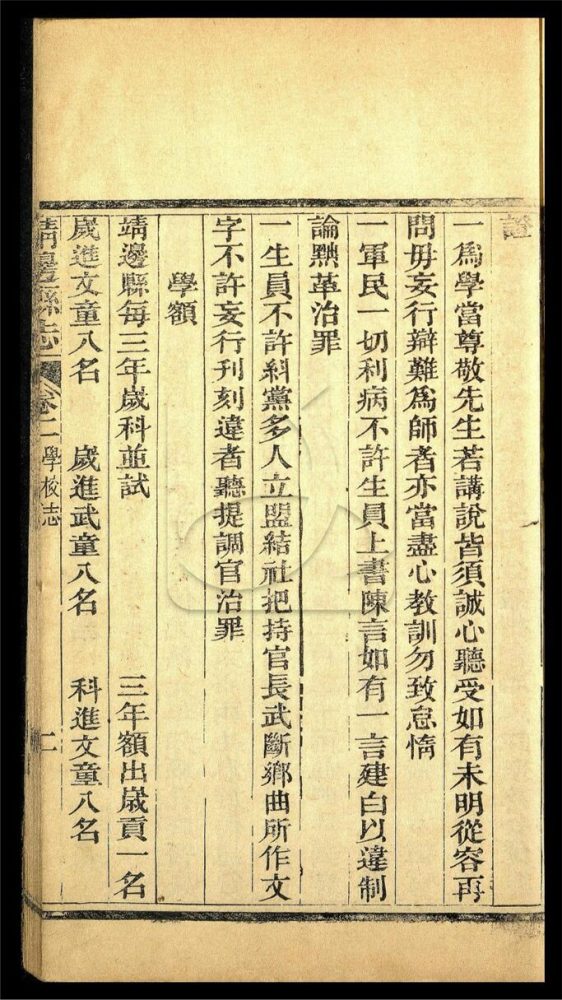 證
一爲學當尊敬先生若講說皆須誠心聽受如有未明從容再
問毋妄行辯難爲師者亦當盡心教訓勿致怠惰
一軍民一切利病不許生員上書陳言如有一言建白以違制
論黜革治罪
一生員不許糾黨多人立盟結社把持官長武斷鄉曲所作文
字不許妄行刊刻違者聽提調官治罪
學額
靖邊縣每三年歲科並試 三年額出歲貢一名
歲進文童八名 歲進武童八名 科進文童八名
靖邊縣志 卷二 學校志 二